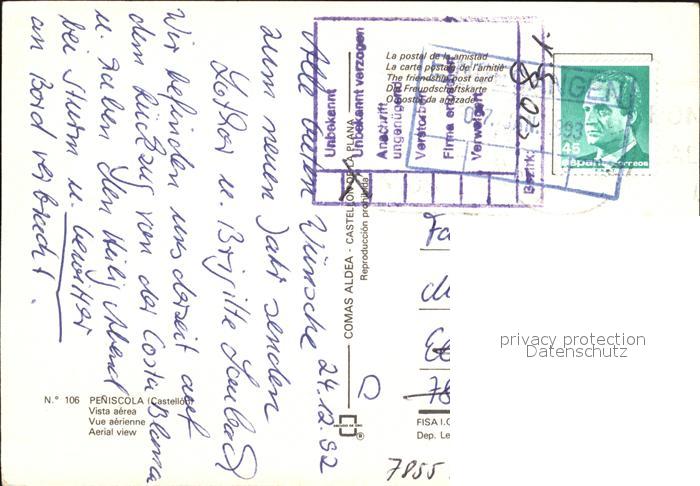 Alle guten Wünsche 24.12.92
zum neuen Jahr senden
Lothar u. Brigitte
Wir befinden uns derzeit auf
dem Rückzug von der Costa Blanca
u. haben den Heilig Abend
bei Sturm u. Gewitter
an Bord verbracht.
N.° 106 PEÑISCOLA (Castellón)
Vista aérea
Vue aérienne
Aerial view
COMAS ALDEA - CASTELLON DE LA PLANA
Reproducción prohibida
La postal de la amistad
La carte postale de l'amitié
The friendship post card
Die Freundschaftskarte
O postal da amizade
Unbekannt
Unbekannt verzogen
Anschrift
ungenügend
Verstorben
Firma erloschen
Verweigert
Bezirk:
93
45
España correos
Fa
D
78
7855
FISA I.G
Dep. Le
privacy protection
Datenschutz